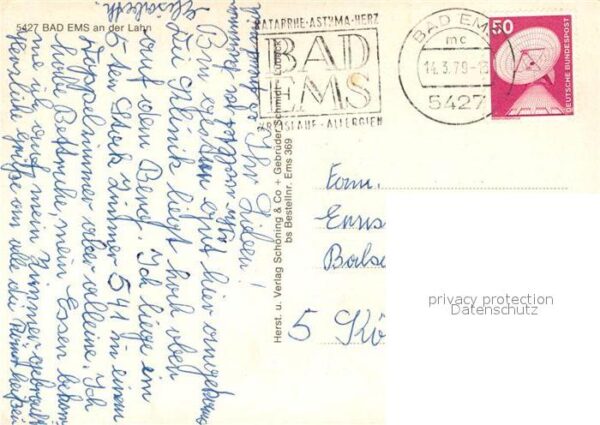 5427 BAD EMS an der Lahn
KATARRHE-ASTHMA-HERZ
BAD
EMS
KREISLAUF-ALLERGIEN
BAD EMS
mc
14.3.79
5427
50
DEUTSCHE BUNDESPOST
Herst. u. Verlag Schöning & Co + Gebrüder Schmidt - Lübeck
bs Bestellnr. Ems 369
Ihr Lieben!
Bin gestern gut hier angekommen
Die Klinik liegt hoch oben
auf dem Berg. Ich liege im
5ten Stock Zimmer 541 in einem
Doppelzimmer aber alleine. Ich
habe Bettruhe, mein Essen bekom
me ich auf mein Zimmer gebracht
Herzliche Grüße an alle
Elisabeth.
Fam.
5 Kö
privacy protection
Datenschutz